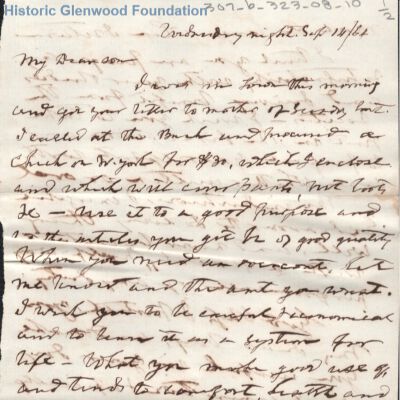 Historic Glenwood Foundation
307-6-323-08-10
1/2
Wednesday night. Sep 14/64
My Dear son
I was in town this morning
and got your letter to mother of Sunday last.
I called at the Bank and procured a
Check on N. York for $30, which I enclose
and which will coat, pants, vest, boots
&c - use it to a good purpose and
let the articles you get be of good quality
When you need an overcoat, let
me know and the amt you want.
I wish you to be careful & economical
and to learn it as a system for
life - What you make good use of,
and tends to comfort, health and